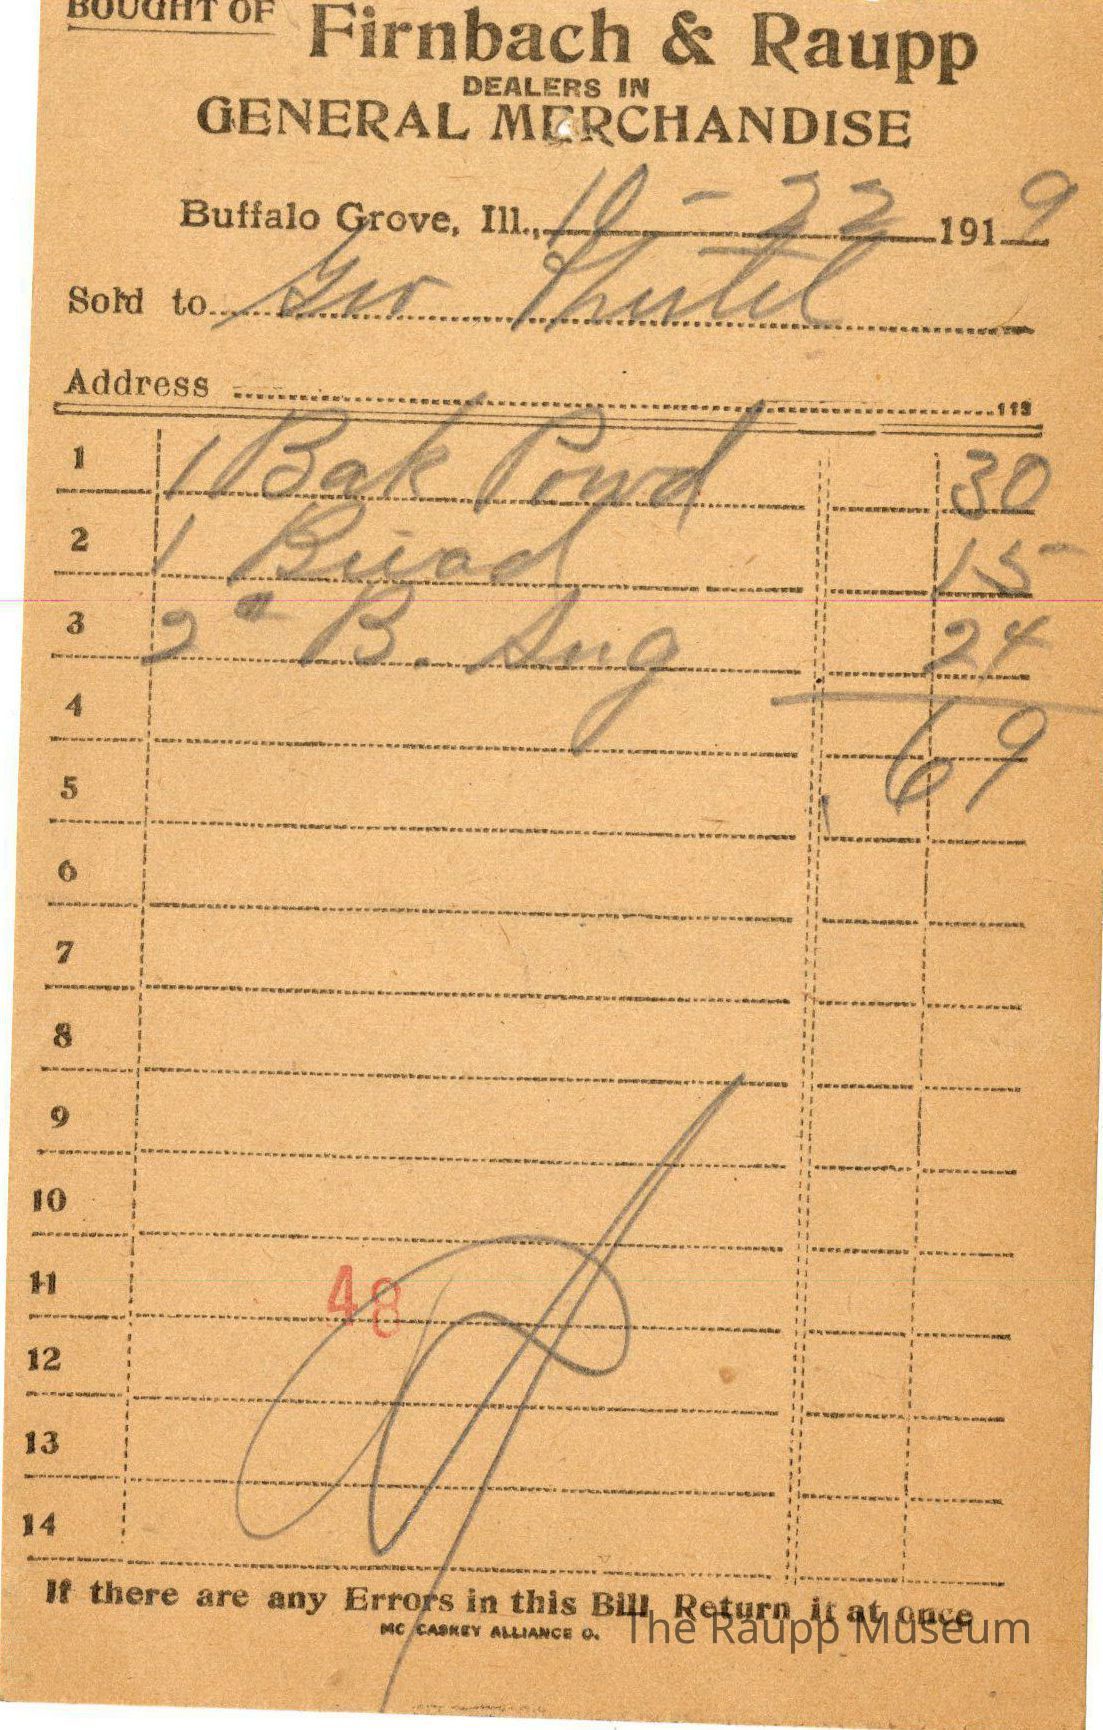 BOUGHT OF
Firnbach & Raupp
DEALERS IN
GENERAL MERCHANDISE
Buffalo Grove, Ill., 10 - 22 1919
Sold to Geo
Address
113
1 1 Bak Powd 30
2 1 Bread 15
3 2 # B. Sug 24
4 69
5
6
7
8
9
10
11
48
12
13
14
If there are any Errors in this Bill Return it at once
MC CASKEY ALLIANCE O.
The Raupp Museum